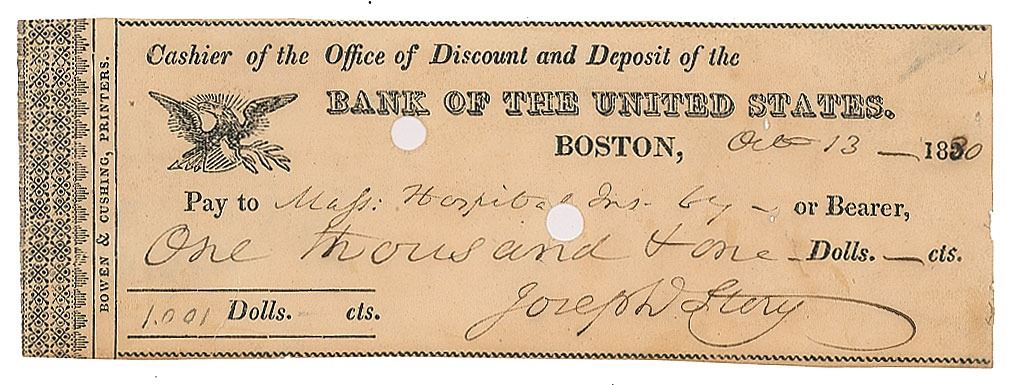 BOWEN & CUSHING, PRINTERS.
Cashier of the Office of Discount and Deposit of the
BANK OF THE UNITED STATES.
BOSTON, Oct 13 — 1830
Pay to Mass: Hospital Ins. Cy — or Bearer,
One thousand & one — Dolls. — cts.
1.001 Dolls. — cts.
Joseph Story